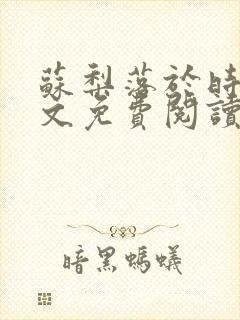 蘇梨落於時
文免費閱讀
暗黑螞蟻